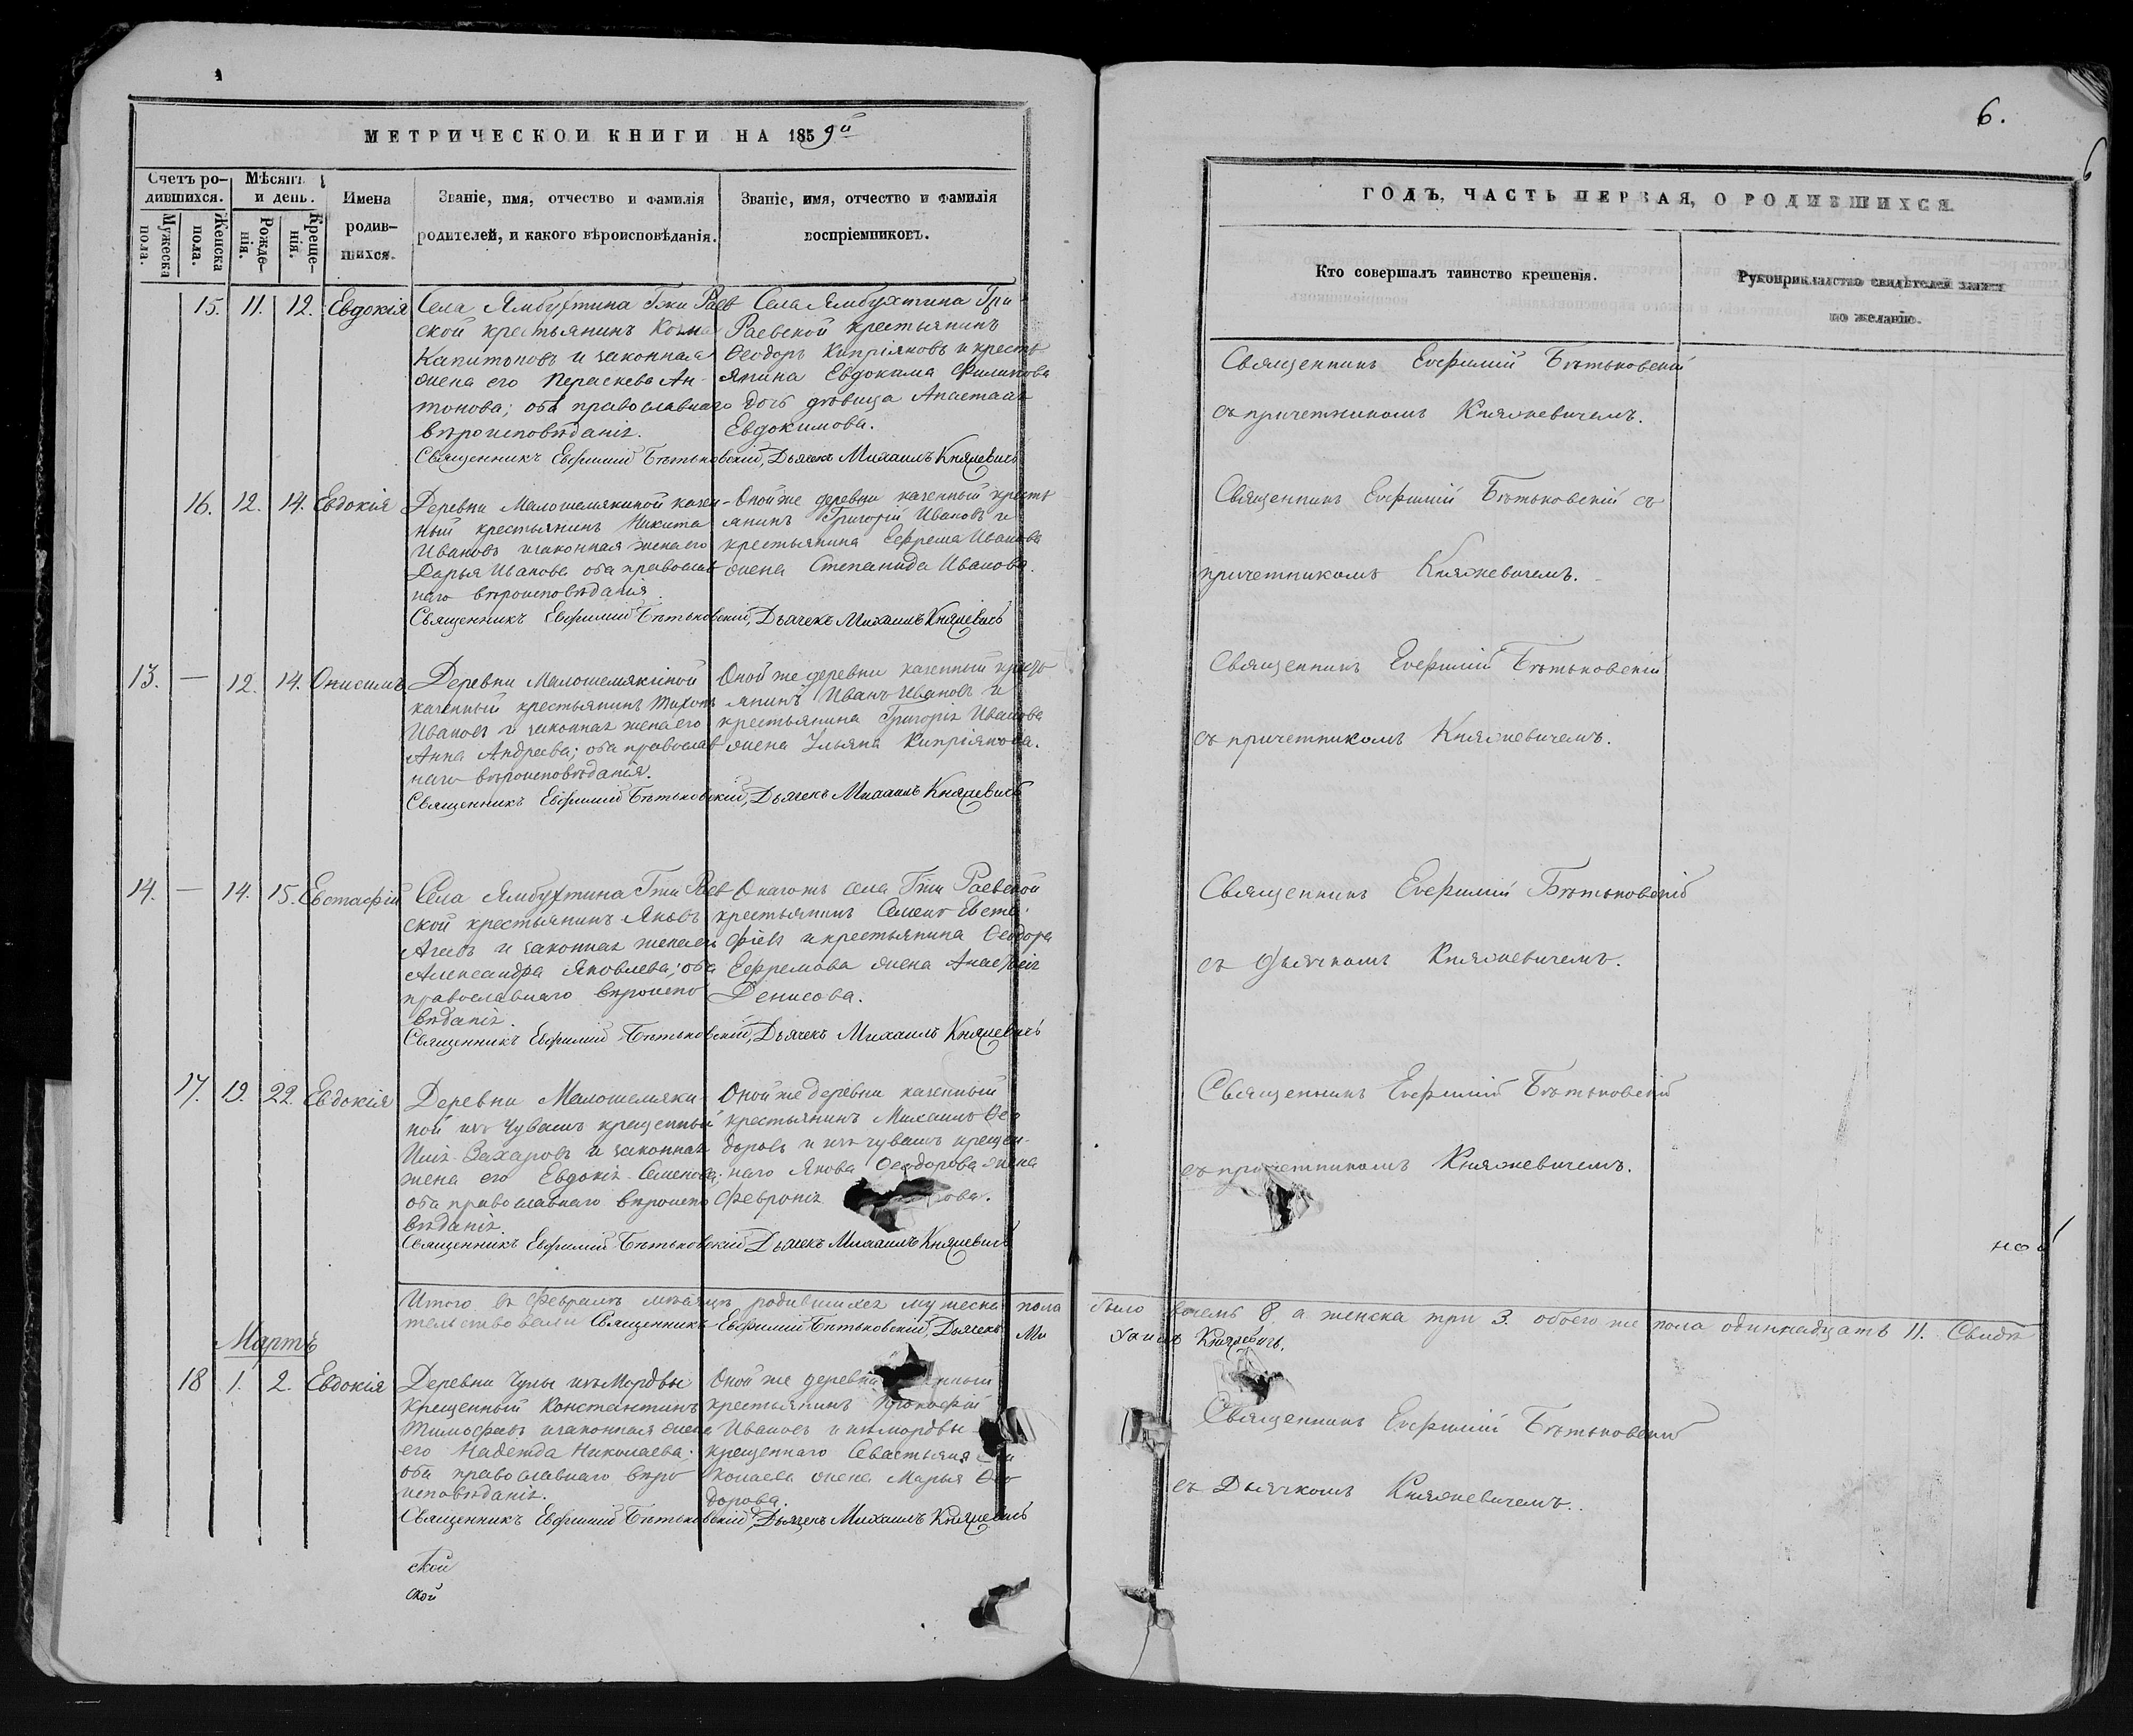 МЕТРИЧЕСКОЙ КНИГИ НА 1859й
Счетъ ро-
дившихся.
Мужеска пола.
Женска пола.
Мѣсяцъ
и день.
Рожде-
нія.
Креще-
нія.
Имена
родив-
шихся.
Званіе, имя, отчество и фамилія
родителей, и какого вѣроисповѣданія.
Званіе, имя, отчество и фамилія
воспріемниковъ.
15. 11. 12. Евдокія
Села Ямбухтина Гжи Раев
ской крестьянинъ Козма
Капитоновъ и законная
жена его Пераскева Ан-
тонова; оба православнаго
вѣроисповѣданія.
Села Ямбухтина Гжи
Раевской крестьянинъ
Ѳеодоръ Кипріяновъ и кресть
янина Евдокима Филипова
дочь дѣвица Анастасія
Евдокимова.
Священникъ Евфимий Бѣтьковскій, Дьячекъ Михаилъ Княжевичь
16. 12. 14. Евдокія
Деревни Малошемякиной казен-
ный крестьянинъ Никита
Ивановъ и законная жена его
Дарья Иванова оба православ
наго вѣроисповѣданія.
Оной же деревни казенный кресть
янинъ Григорій Ивановъ и
крестьянина Ефрема Иванова
жена Степанида Иванова.
Священникъ Евфимий Бѣтьковскій, Дьячекъ Михаилъ Княжевичь
13. — 12. 14. Онисимъ
Деревни Малошемякиной
казенный крестьянинъ Тихонъ
Ивановъ и законная жена его
Анна Андреева; оба православ
наго вѣроисповѣданія.
Оной же деревни казенный кресть
янинъ Иванъ Ивановъ и
крестьянина Григорія Иванова
жена Ульяна Кипріянова.
Священникъ Евфимий Бѣтьковскій, Дьячекъ Михаилъ Княжевичь
14. — 14. 15. Евстафій
Села Ямбухтина Гжи Раев
ской крестьянинъ Яковъ
и законная жена его
Александра Яковлева; оба
православнаго вѣроиспо
вѣданія.
Онагожъ села Гжи Раевской
крестьянинъ Семенъ Евста-
фіевъ и крестьянина Ѳеодора
Ефремова жена
Денисова.
Священникъ Евфимий Бѣтьковскій, Дьячекъ Михаилъ Княжевичь
17. 19. 22. Евдокія
Деревни Малошемяки-
ной изъ Чувашъ крещенный
Илія Захаровъ и законная
жена его Евдокія Семенова;
оба православнаго вѣроиспо
вѣданія.
Оной же деревни казенный
крестьянинъ Михаилъ Ѳео
доровъ и изъ чувашъ крещен-
наго Якова Ѳеодорова жена
Февронія ова.
Священникъ Евфимий Бѣтьковскій Дьячекъ Михаилъ Княжевичь
Итого въ Февралѣ мѣсяцѣ родившихся мужеска пола было восемь 8. а женска три 3. обоего же пола одиннадцать 11. Свидѣ
тельствовали Священникъ Евфимий Бѣтьковскій, Дьячекъ Михаилъ Княжевичь.
Мартъ
18 1. 2. Евдокія
Деревни Чулы изъ Мордвы
крещенный Константинъ
Тимофеевъ и законная жена
его Надежда Николаева;
оба православнаго вѣро
исповѣданія.
Оной же деревни енный
крестьянинъ Прокофій
Ивановъ и изъ мордвы
крещеннаго Севастьяна Ни
колаева жена Марья Ѳео
дорова.
Священникъ Евфимий Бѣтьковскій, Дьячекъ Михаилъ Княжевичь
ской
ской
6.
6
ГОДЪ, ЧАСТЬ ПЕРВАЯ, О РОДИВШИХСЯ.
Кто совершалъ таинство крещенія.
Рукоприкладство свидѣтелей записи
по желанію.
Священникъ Евфимій Бѣтьковскій
съ причетникомъ Княжевичемъ.
Священникъ Евфимій Бѣтьковскій съ
причетникомъ Княжевичемъ.
Священникъ Евфимій Бѣтьковскій
съ причетникомъ Княжевичемъ.
Священникъ Евфимій Бѣтьковскій
съ дьячкомъ Княжевичемъ.
Священникъ Евфимій Бѣтьковскій
съ причетникомъ Княжевичемъ.
ной
Священникъ Евфимій Бѣтьковскій
съ Дьячкомъ Княжевичемъ.